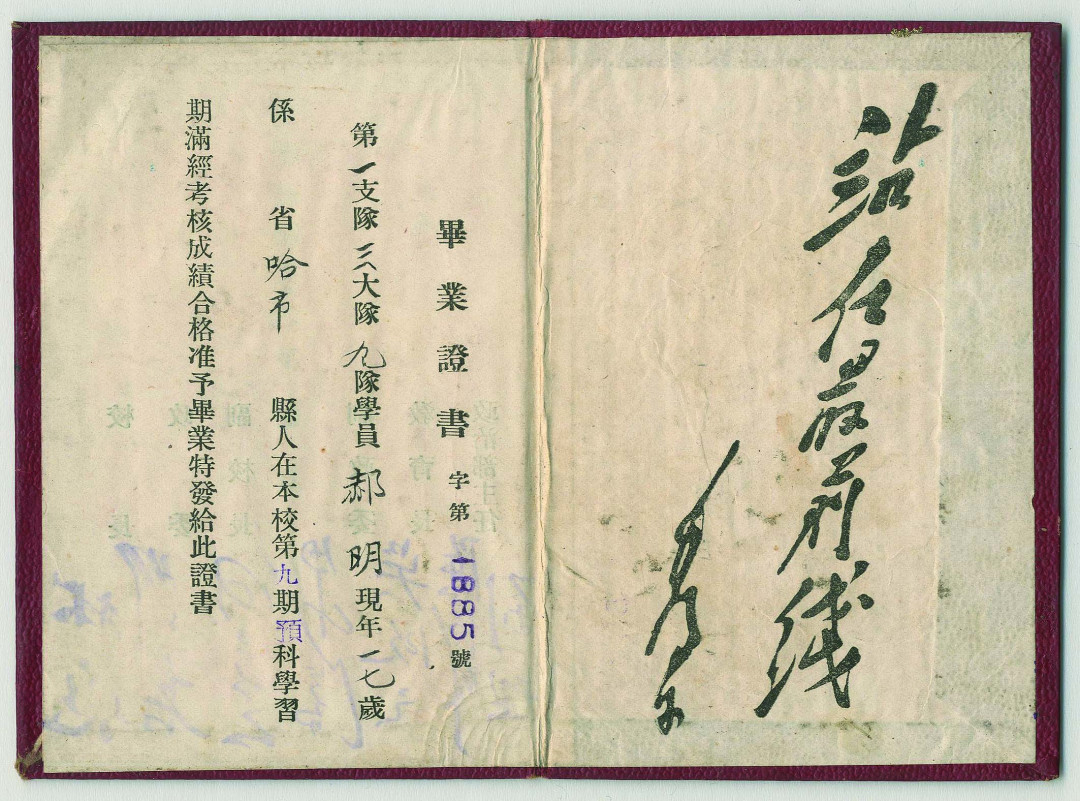 站在最前线
毛泽东
畢業證書 字第1885號
第一支隊三大隊九隊學員郝明現年一七歲
係 省哈市 縣人在本校第九期預科學習
期滿經考核成績合格准予畢業特發給此證書